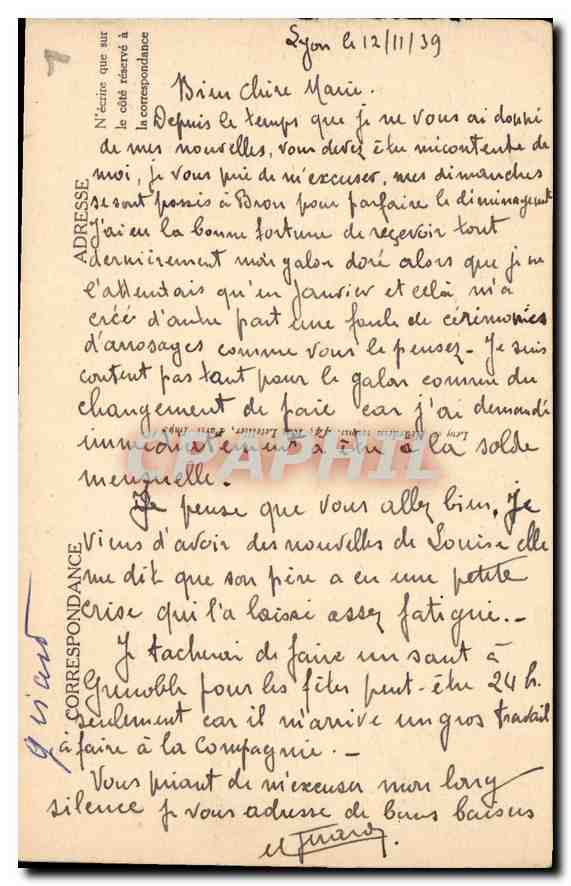 Lyon le 12/11/39
N'écrire que sur
le côté réservé à
la correspondance
ADRESSE
Bien Chère Marie.
Depuis le temps que je ne vous ai donné
de mes nouvelles, vous devez être mécontente de
moi, je vous prie de m'excuser, mes dimanches
se sont passés à Bron pour parfaire le déménagement
J'ai eu la bonne fortune de reçevoir tout
dernièrement mon galon doré alors que je ne
l'attendais qu'en Janvier et celà m'a
créé d'autre part une foule de cérémonies
d'arrosages comme vous le pensez - Je suis
content pas tant pour le galon comme du
changement de paie car j'ai demandé
immédiatement à être à la solde
mensuelle.
CRAPHIL
Je pense que vous allez bien, Je
viens d'avoir des nouvelles de Louise elle
me dit que son père a eu une petite
crise qui l'a laissé assez fatigué. -
Je tacherai de faire un saut à
Grenoble pour les fêtes peut-être 24 h.
seulement car il m'arrive un gros travail
à faire à la Compagnie. -
Vous priant de m'excuser mon long
silence je vous adresse de bons baisers
CORRESPONDANCE